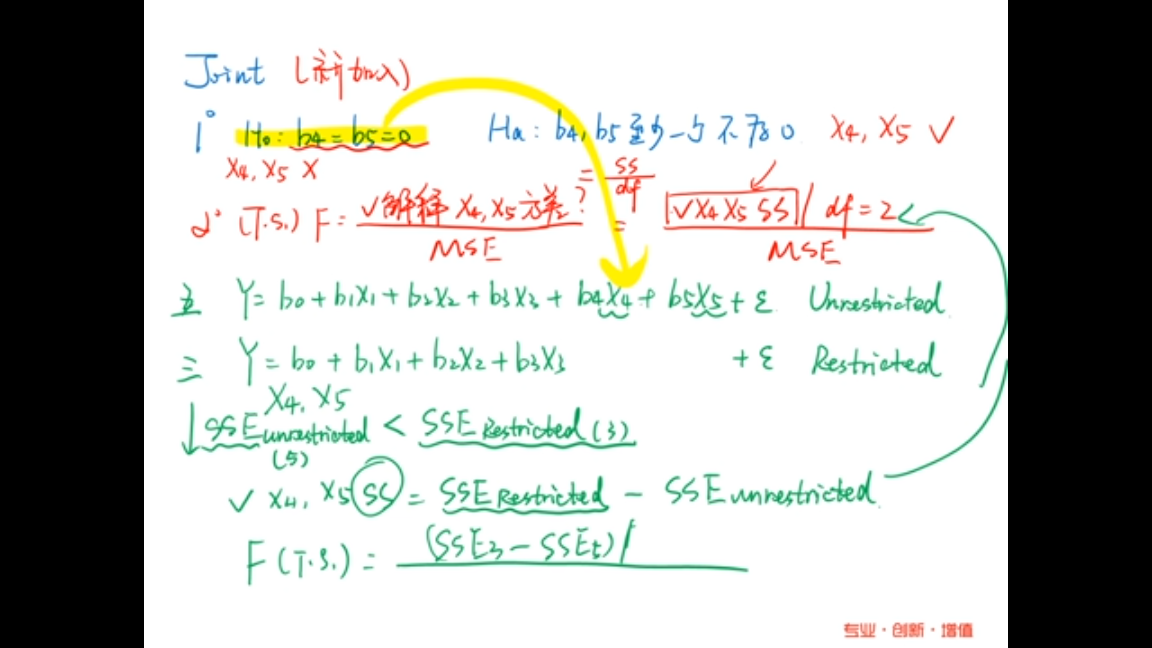 Joint (新加入)
1° H₀: b4 = b5 = 0 Ha: b4, b5 至少一个不为0 X4, X5 ✓
X4, X5 X
2° (T.S.) F = ✓解释 X4, X5 方差? / MSE = SS / df = ✓X4 X5 SS / df = 2 / MSE
五 Y = b0 + b1X1 + b2X2 + b3X3 + b4X4 + b5X5 + ε Unrestricted
三 Y = b0 + b1X1 + b2X2 + b3X3 + ε Restricted
X4, X5
↓ SSE unrestricted (5) < SSE Restricted (3)
✓ X4, X5 SS = SSE Restricted - SSE unrestricted
F (T.S.) = (SSE3 - SSE5) /
专业·创新·增值